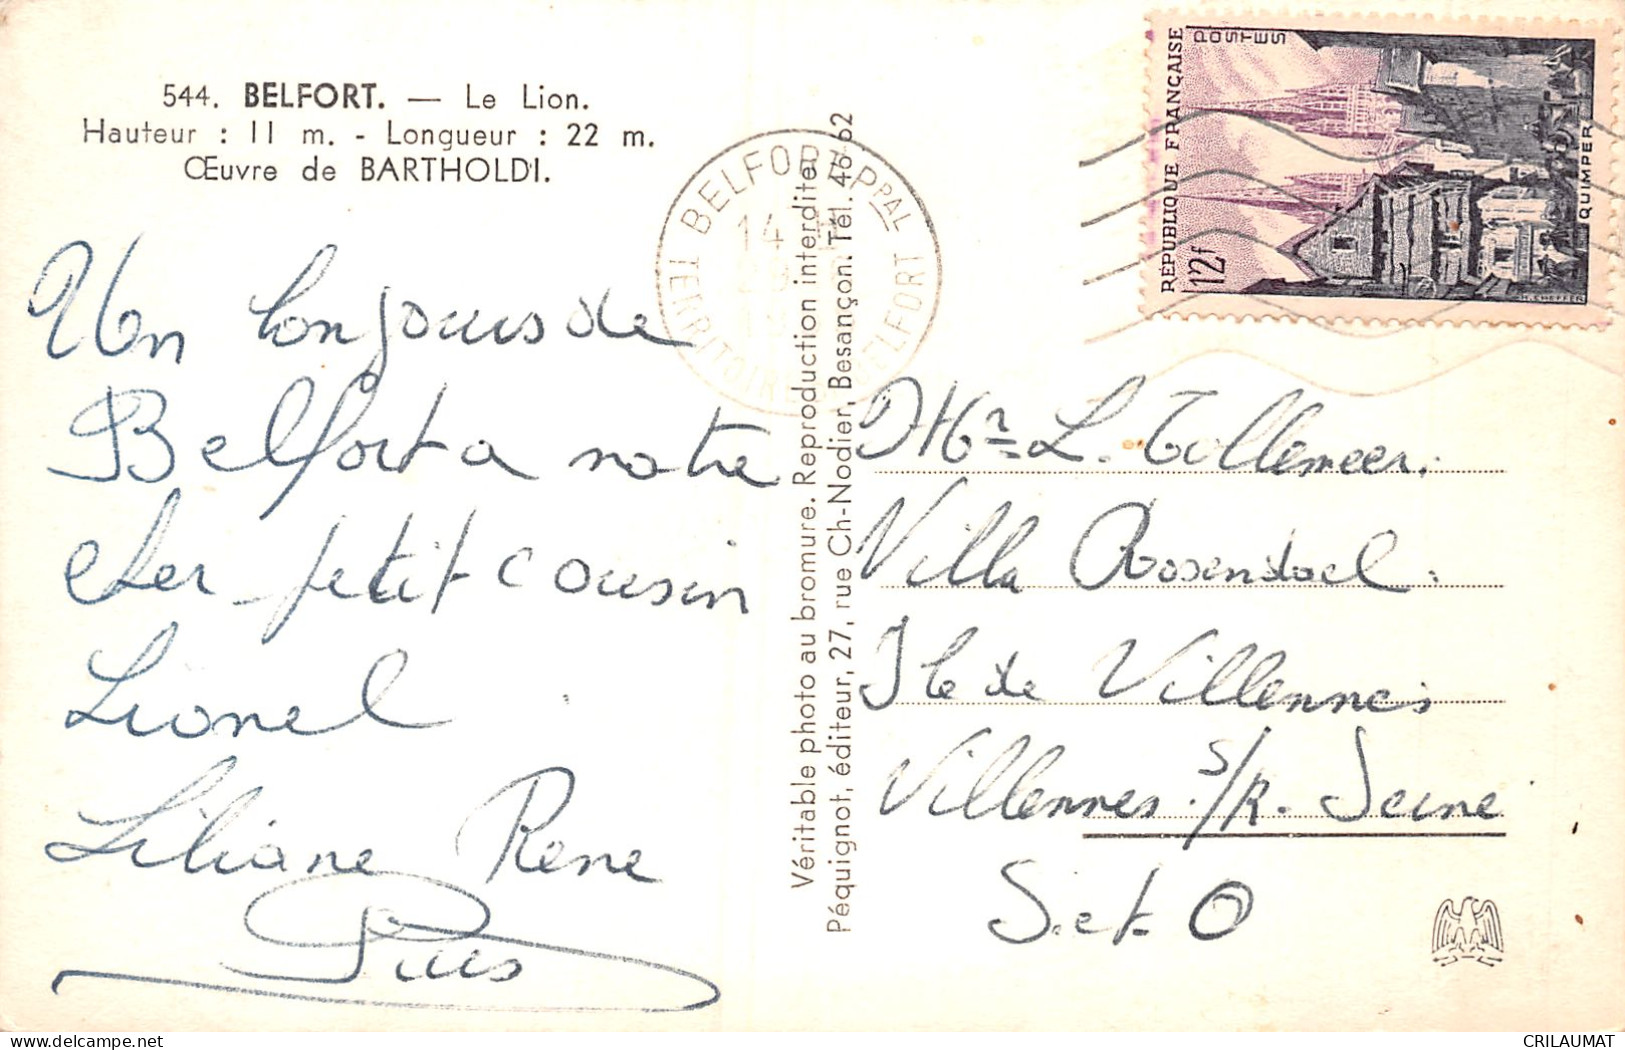 544. BELFORT. — Le Lion.
Hauteur : 11 m. - Longueur : 22 m.
Œuvre de BARTHOLDI.
Un bonjour de
Belfort a notre
cher petit cousin
Lionel
Liliane Rene
Véritable photo au bromure. Reproduction interdite
Péquignot, éditeur, 27, rue Ch-Nodier, Besançon. Tél. 46-62
BELFORT PPAL
14
TERRITOIRE DE BELFORT
RÉPUBLIQUE FRANÇAISE
POSTES
12f
QUIMPER
Mr L. Tillemeer.
Villa Rosendael.
Ile de Villennes
Villennes s/R. Seine
S.et.O
CRILAUMAT